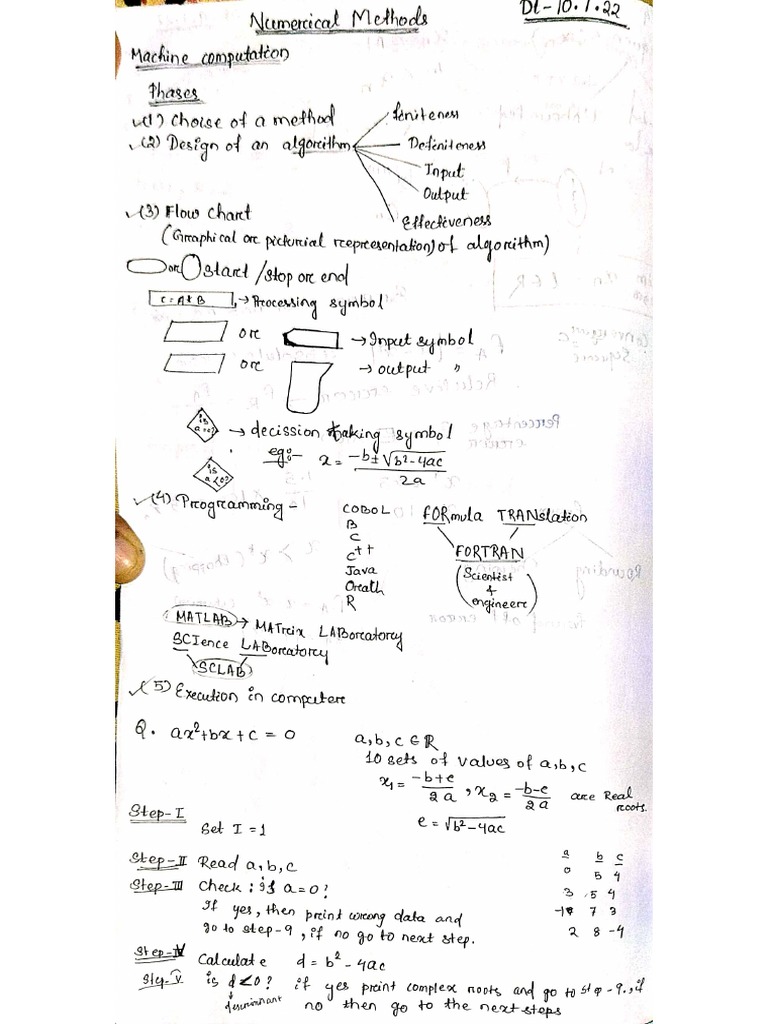 Numerical Methods
Dt-10.1.22
Machine computation
Phases
(1) Choise of a method
(2) Design of an algorithm
finiteness
Definiteness
Input
Output
Effectiveness
(3) Flow chart
(Graphical or picturial representation) of algorithm)
or start / stop or end
C = A + B → Processing symbol
or → Input symbol
or → output "
is a=0? → decission taking symbol
is d<0?
eg:- x = -b±√b²-4ac / 2a
(4) Programming -
COBOL
B
C
C++
Java
R
FORmula TRANslation
FORTRAN
(Scientist & engineer)
MATLAB → MATrix LABoratory
SCIence LABoratory
SCLAB
(5) Execution in computer
Q. ax²+bx+c = 0
a, b, c ∈ R
10 sets of values of a, b, c
x₁ = -b+e / 2a , x₂ = -b-e / 2a are Real roots.
e = √b²-4ac
Step-I
Set I = 1
Step-II Read a, b, c
Step-III Check : is a=0?
If yes, then print wrong data and
go to step-9, if no go to next step.
a b c
0 5 4
3 5 4
7 3
2 8 -4
Step-IV Calculate d = b² - 4ac
Step-V is d<0? if yes print complex roots and go to step-9., if
discriminant
no then go to the next steps